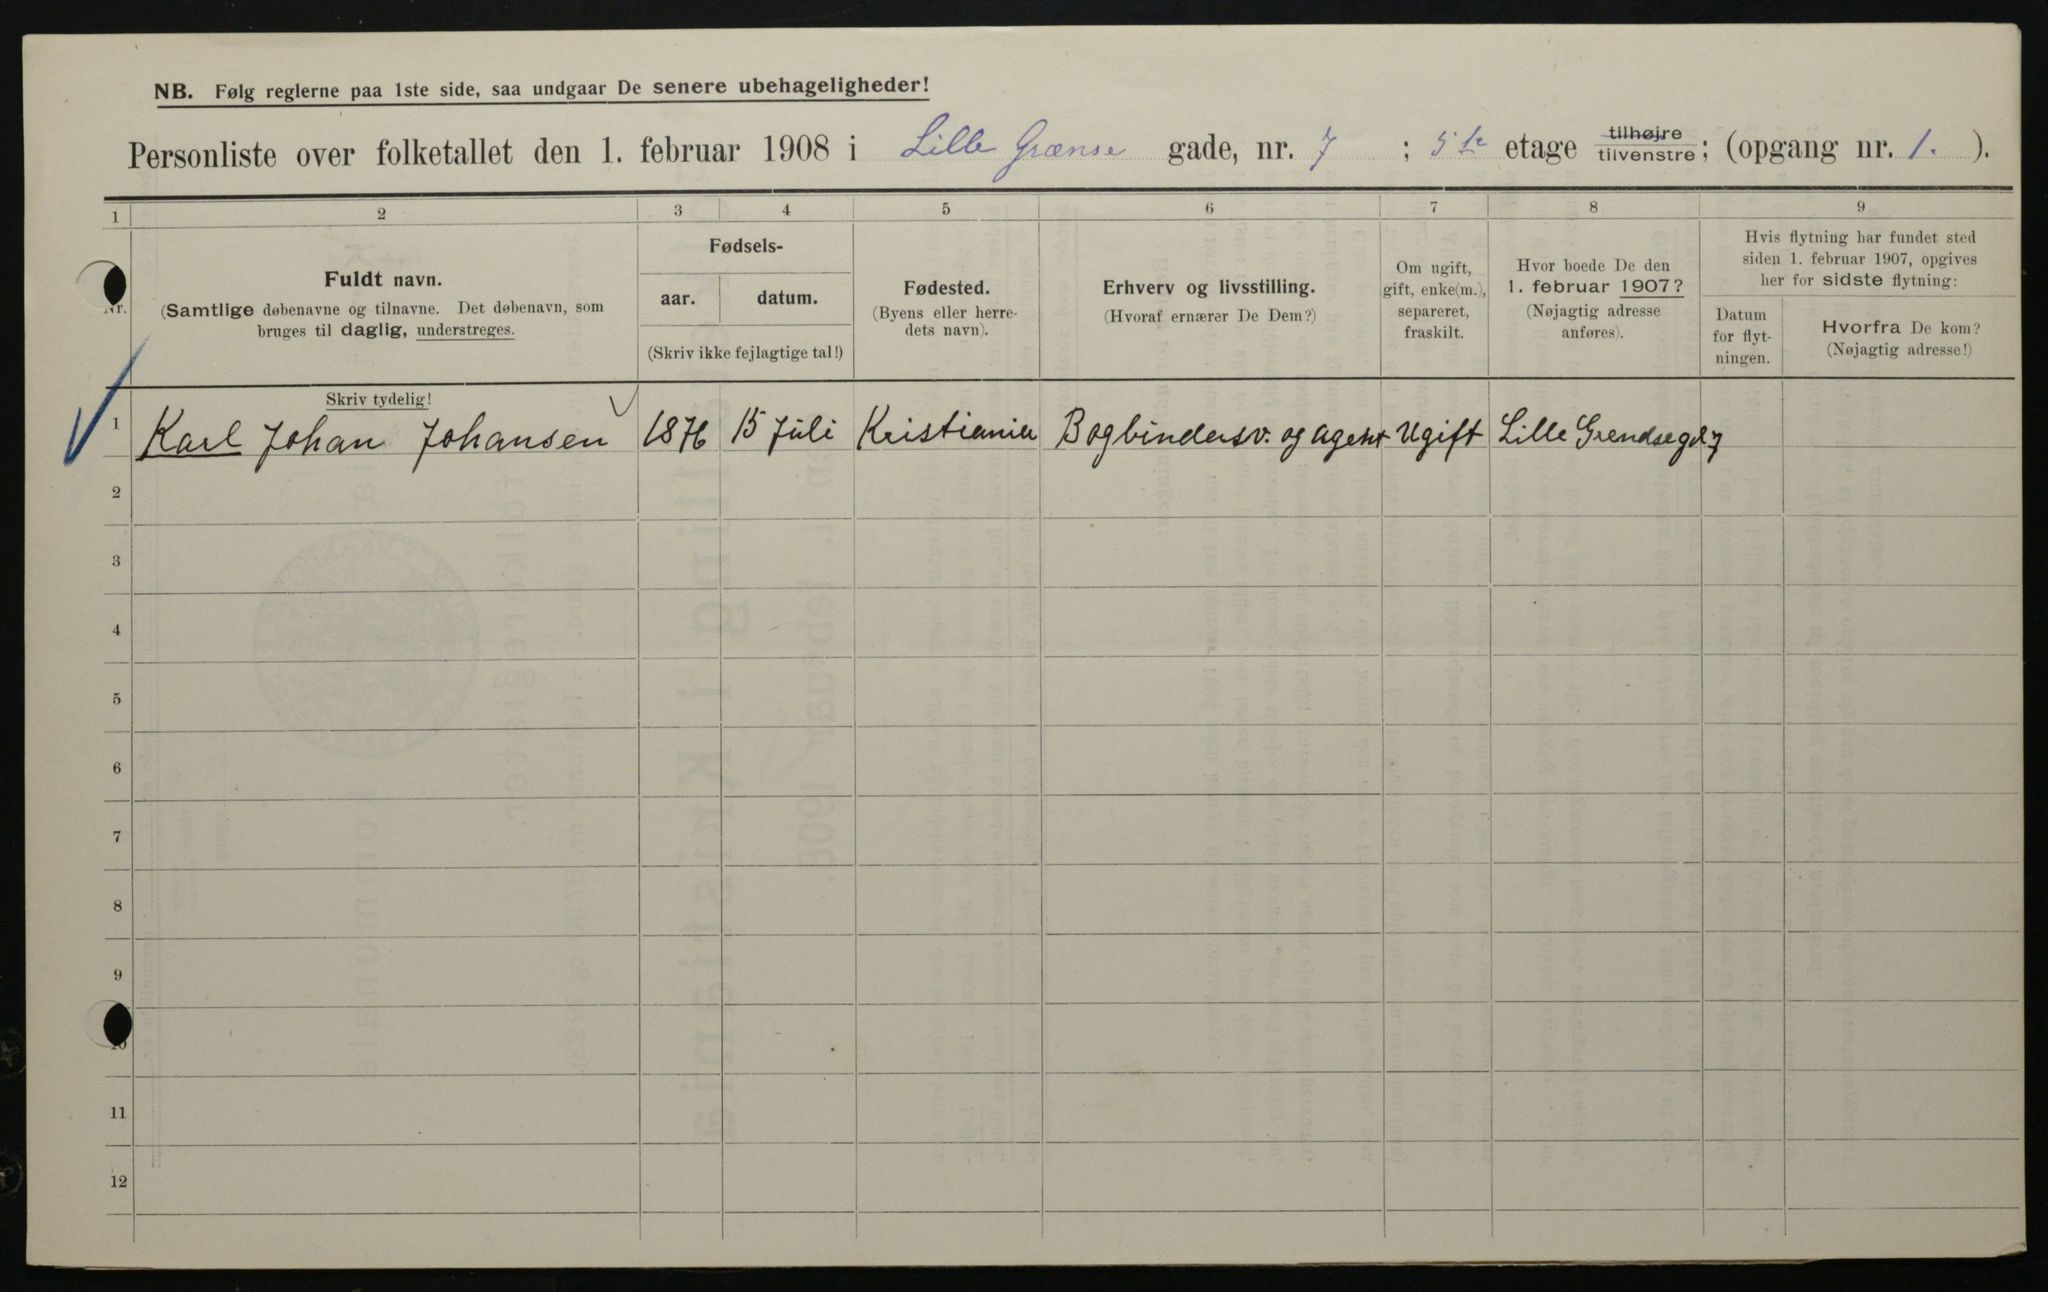 NB. Følg reglerne paa 1ste side, saa undgaar De senere ubehageligheder!
Personliste over folketallet den 1. februar 1908 i Lille Grænse gade, nr. 7 ; 5te etage tilhøjre tilvenstre; (opgang nr. 1. ).
1 2 3 4 5 6 7 8 9
Nr.
Fuldt navn.
(Samtlige døbenavne og tilnavne. Det døbenavn, som
bruges til daglig, understreges.
Skriv tydelig!
Fødsels-
aar. datum.
(Skriv ikke fejlagtige tal!)
Fødested.
(Byens eller herre-
dets navn).
Erhverv og livsstilling.
(Hvoraf ernærer De Dem?)
Om ugift,
gift, enke(m.),
separeret,
fraskilt.
Hvor boede De den
1. februar 1907?
(Nøjagtig adresse
anføres).
Hvis flytning har fundet sted
siden 1. februar 1907, opgives
her for sidste flytning:
Datum
for flyt-
ningen.
Hvorfra De kom?
(Nøjagtig adresse!)
1 Karl Johan Johansen 1876 15 Juli Kristiania Bogbindersv. og agent Ugift Lille Grendsegd 7
2
3
4
5
6
7
8
9
10
11
12